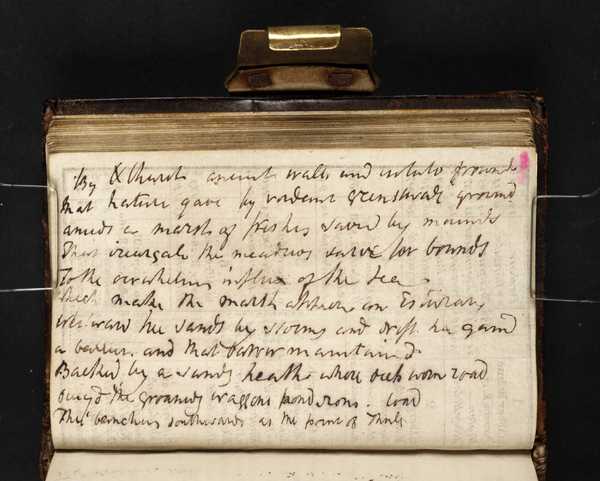 By Xchurch ancient walls and frownd
that nature gave by verdant greenswade ground
amids a marsh of freshes saved by mounds
That the meadows serve for bounds
To the influx of the Sea
which make the marsh appear an Estuary
the sands by storms and drift has gaind
a barrier and that barrier maintaind
Backed by a sandy heath whose deep worn road
Deny'd the groaning waggons pondrous load
This branches southwards as the point of Thule